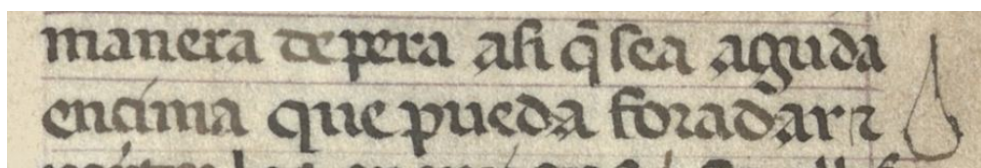 manera de pera asi q̃ sea aguda
encima que pueda foradar ⁊